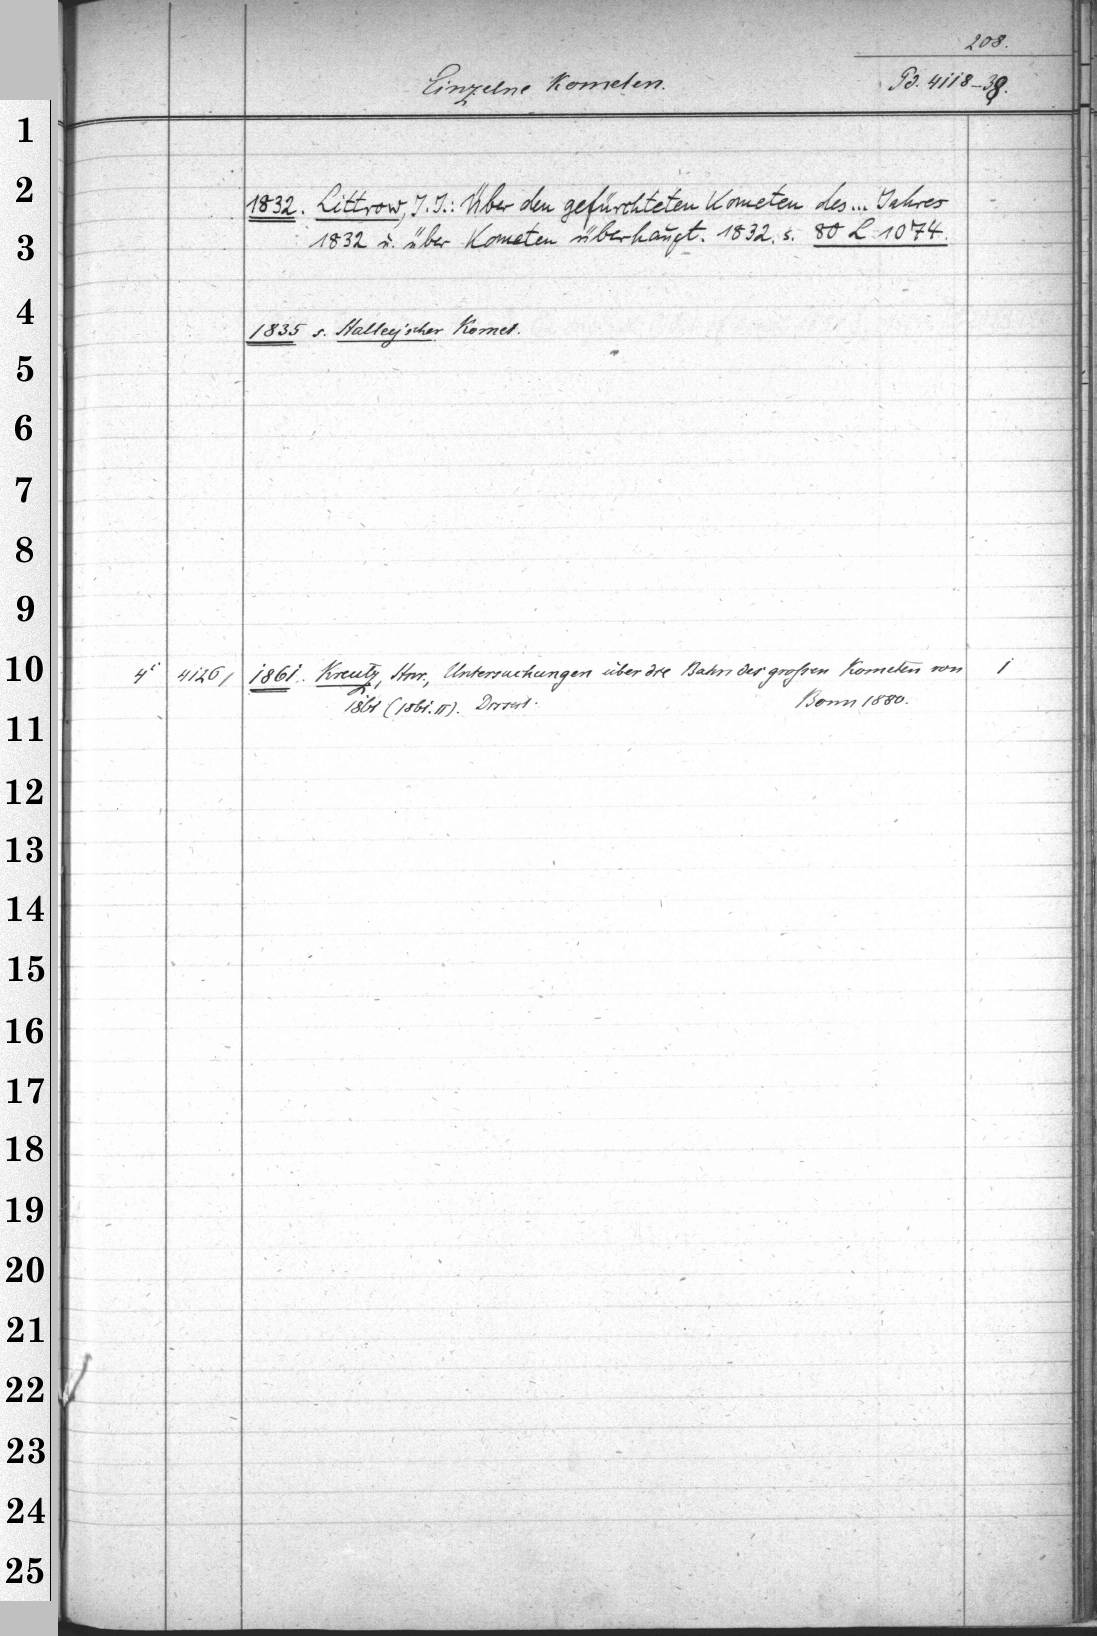 208.
Einzelne Kometen. Pd. 4118-39.
1
2
1832. Littrow, J. J.: Über den gefürchteten Kometen des... Jahres
3
1832 u. über Kometen überhaupt. 1832. s. 80 L 1074.
4
1835 s. Halley'scher Komet.
5
6
7
8
9
10
4° 4126, 1861. Kreutz, Hnr., Untersuchungen über die Bahn des großen Kometen von 1
1861 (1861.II). Dissert. Bonn 1880.
11
12
13
14
15
16
17
18
19
20
21
22
23
24
25